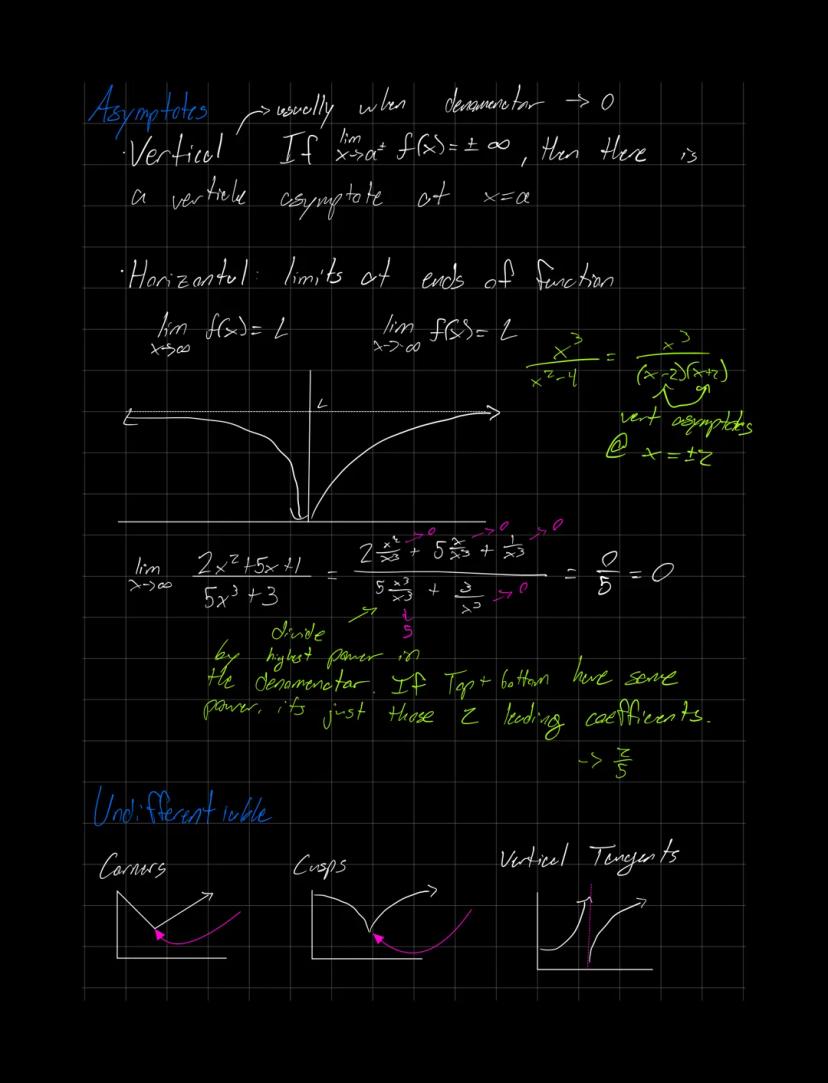 Asymptotes → usually when denomenator → 0
· Vertical If lim x→a± f(x) = ± ∞, then there is
a verticle asymptote at x=a
· Horizontal: limits at ends of function
lim x→∞ f(x) = L lim x→-∞ f(x) = L
x³/(x²-4) = x³/((x-2)(x+2))
vert asymptotes
@ x = ±2
L
lim x→∞ (2x²+5x+1)/(5x³+3) = (2 x²/x³ →0 + 5 x/x³ →0 + 1/x³ →0)/(5 x³/x³ + 3/x³ →0) = 0/5 = 0
5
divide
by highest power in
the denomenator. If Top + bottom have same
power, its just those 2 leading coefficients.
-> 2/5
Undifferentiable
Corners Cusps Vertical Tangents